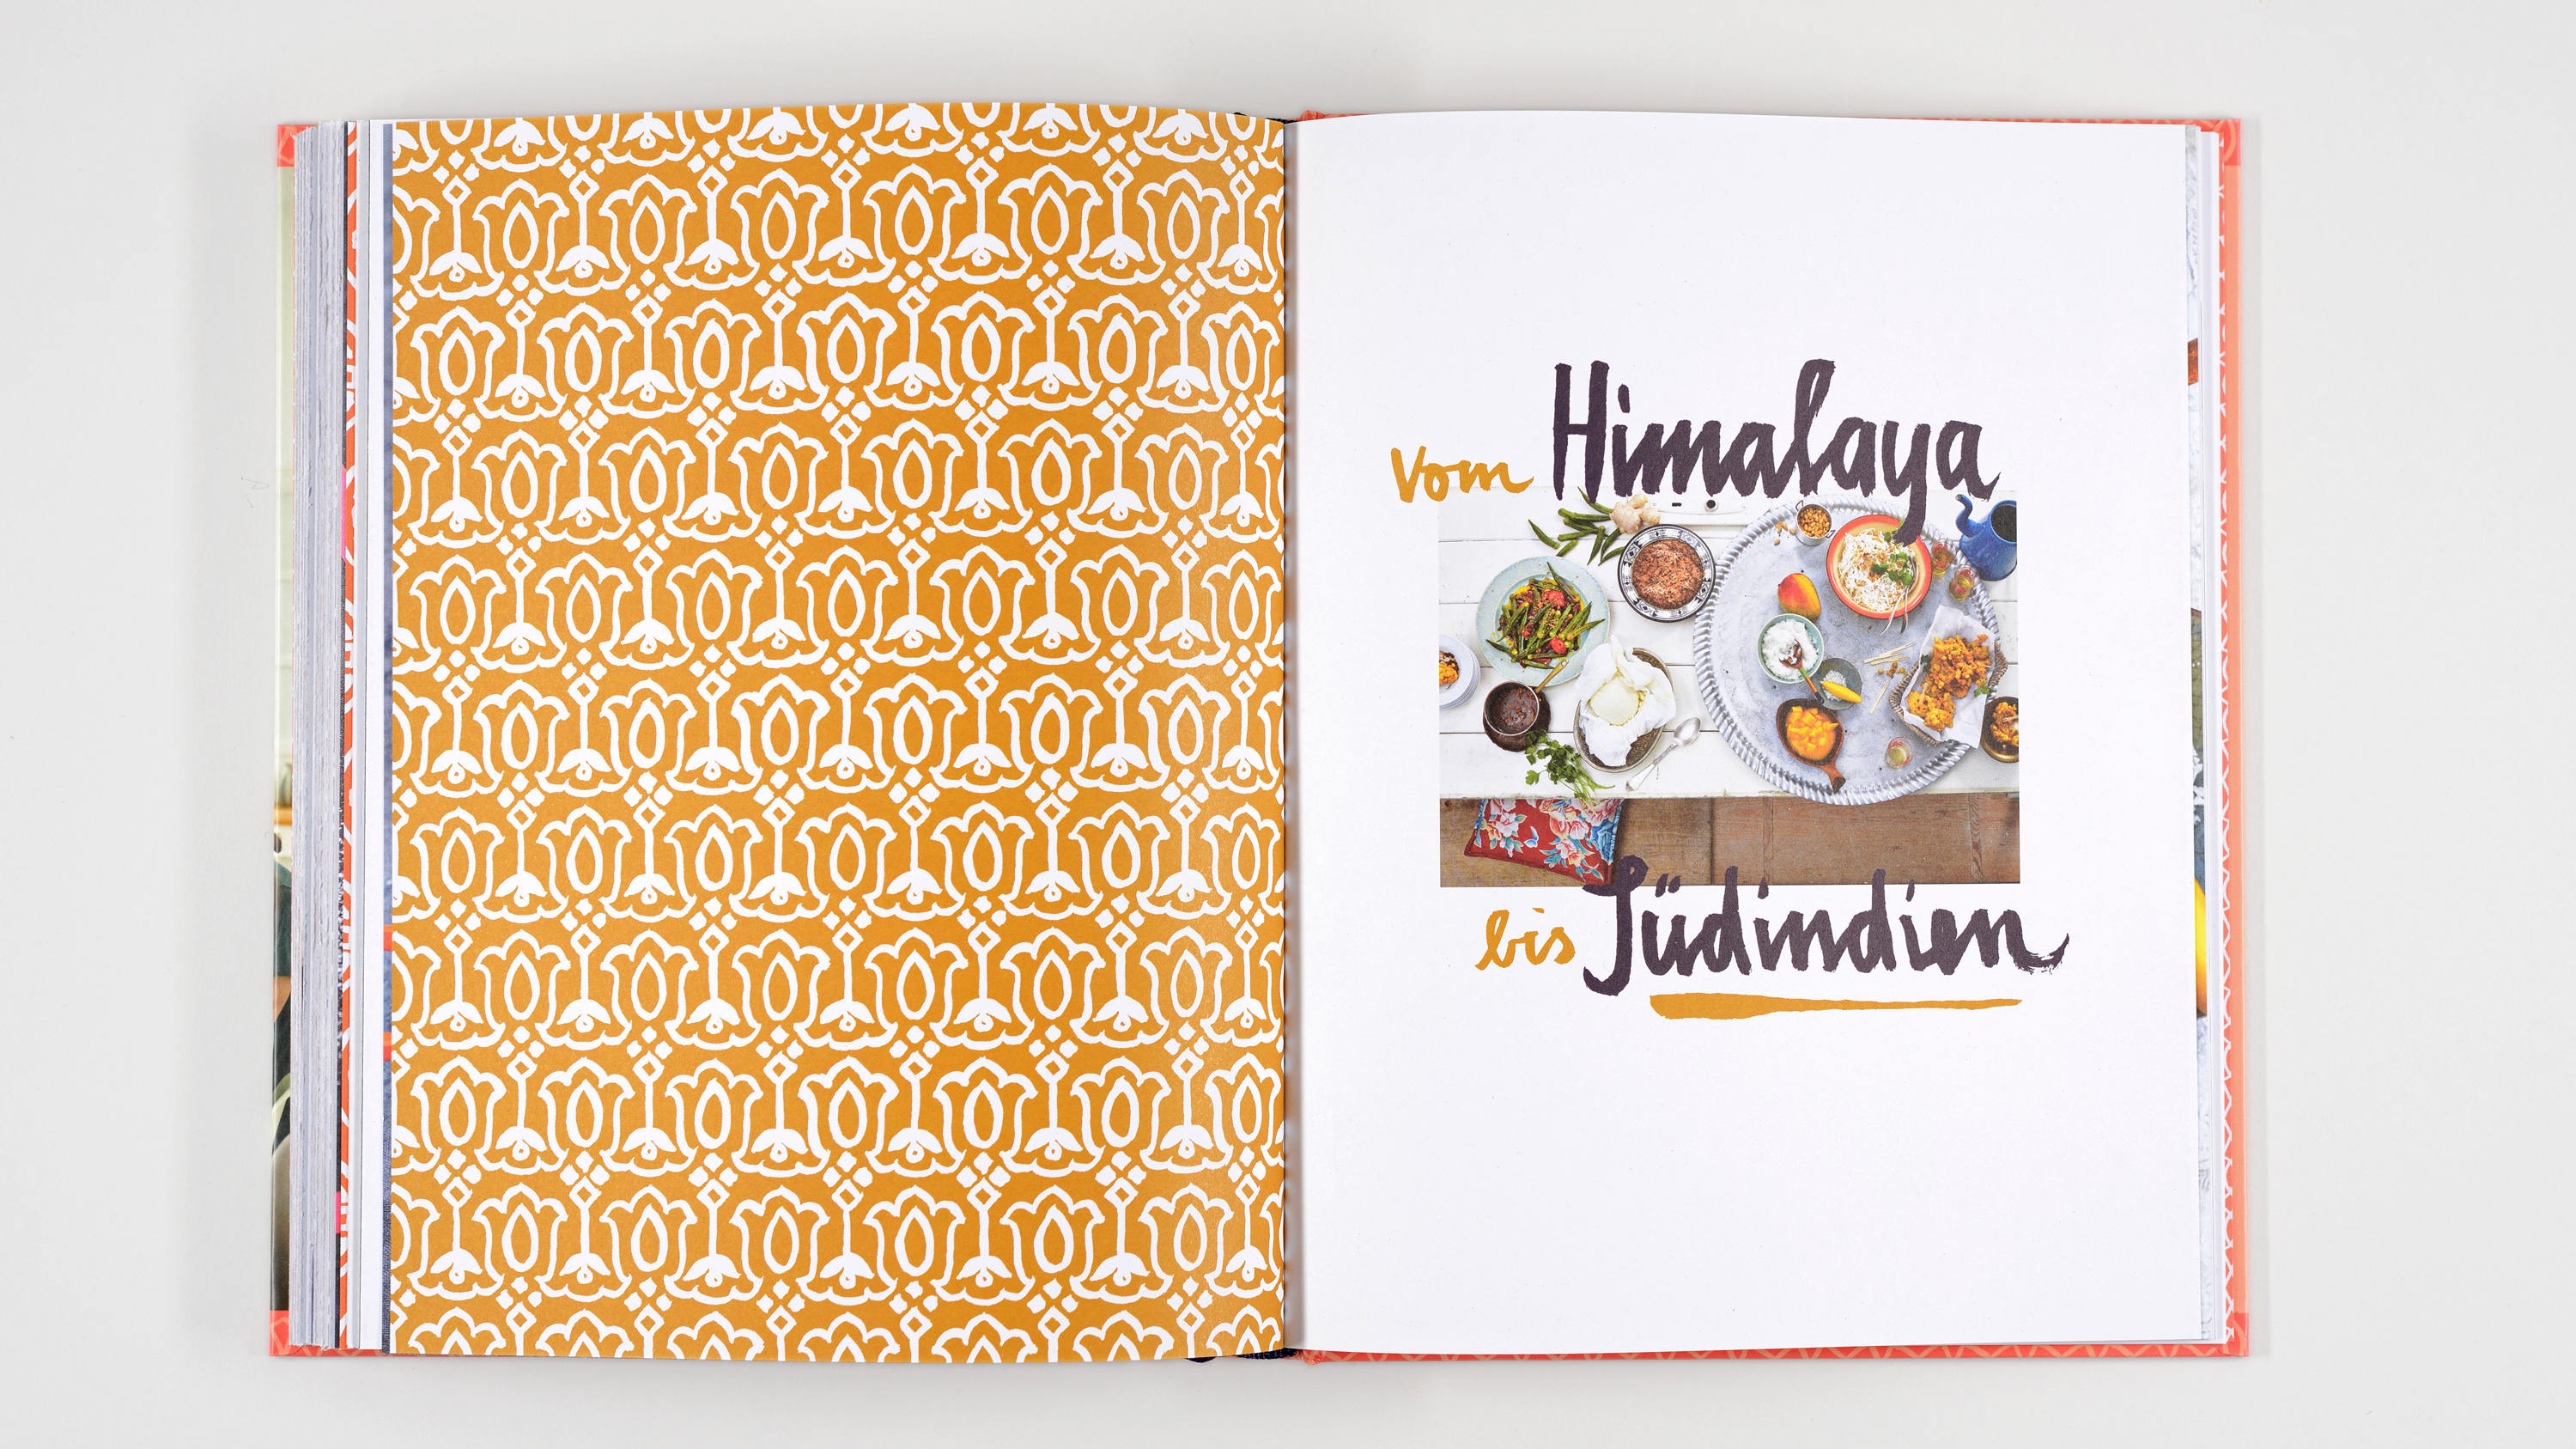 Vom Himalaya
bis Südindien